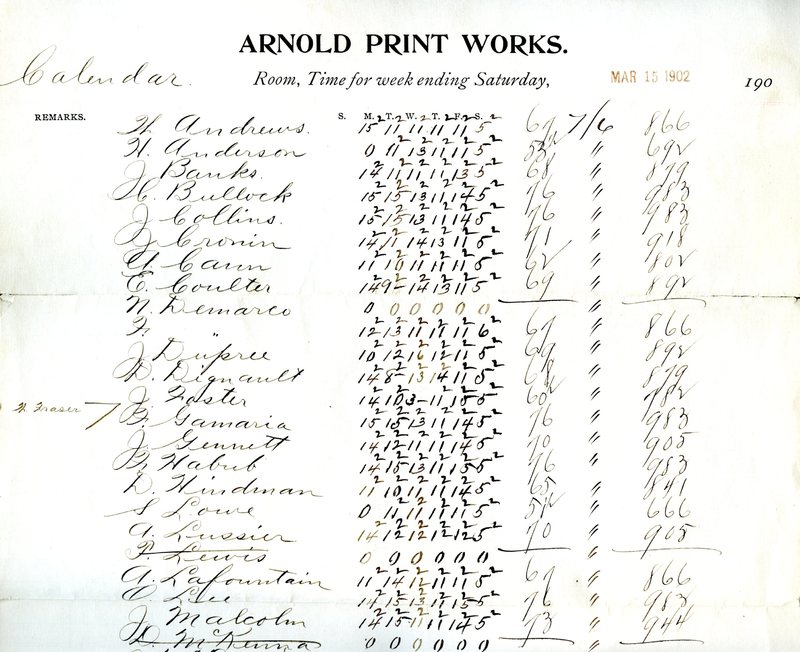 ARNOLD PRINT WORKS.
Calendar. Room, Time for week ending Saturday, MAR 15 1902 190
REMARKS. S. M. T. W. T. F. S.
H. Andrews. 15 11 11 11 11 5 67 7/6 866
H. Anderson 0 11 13 11 11 5 " 692
J Banks. 14 11 11 11 13 5 68 " 879
H. Bullock 15 15 13 11 14 5 76 " 983
J Collins. 15 15 13 11 14 5 76 " 983
J Cronin 14 11 14 13 11 5 71 " 918
Cann 11 10 11 11 11 5 62 " 802
E. Coulter 14 9- 14 13 11 5 69 " 892
N. Demarco 0 0 0 0 0 0 "
F. " 12 13 11 11 11 6 67 " 866
J Dupree 10 12 16 12 11 5 69 " 892
D. Dignault 14 8- 13 14 11 5 68 " 879
J Foster 14 10 3- 11 15 5 " 782
H. Fraser F. Gamaria 15 15 13 11 14 5 76 " 983
J. Gennett 14 12 11 11 14 5 70 " 905
G. Habub 14 15 13 11 15 5 76 " 983
D. Hindman 11 10 11 11 14 5 65 " 841
S Lowe 0 11 11 11 11 5 " 666
A. Lussier 14 12 12 12 12 5 70 " 905
P. Lewis 0 0 0 0 0 0 "
A. Lafountain 11 14 12 11 11 5 67 " 866
E. Lee 14 15 13 11 15 5 76 " 983
J. Malcolm 14 15 11 11 14 5 73 " 944
D. McKenna 0 0 0 0 0 0 "